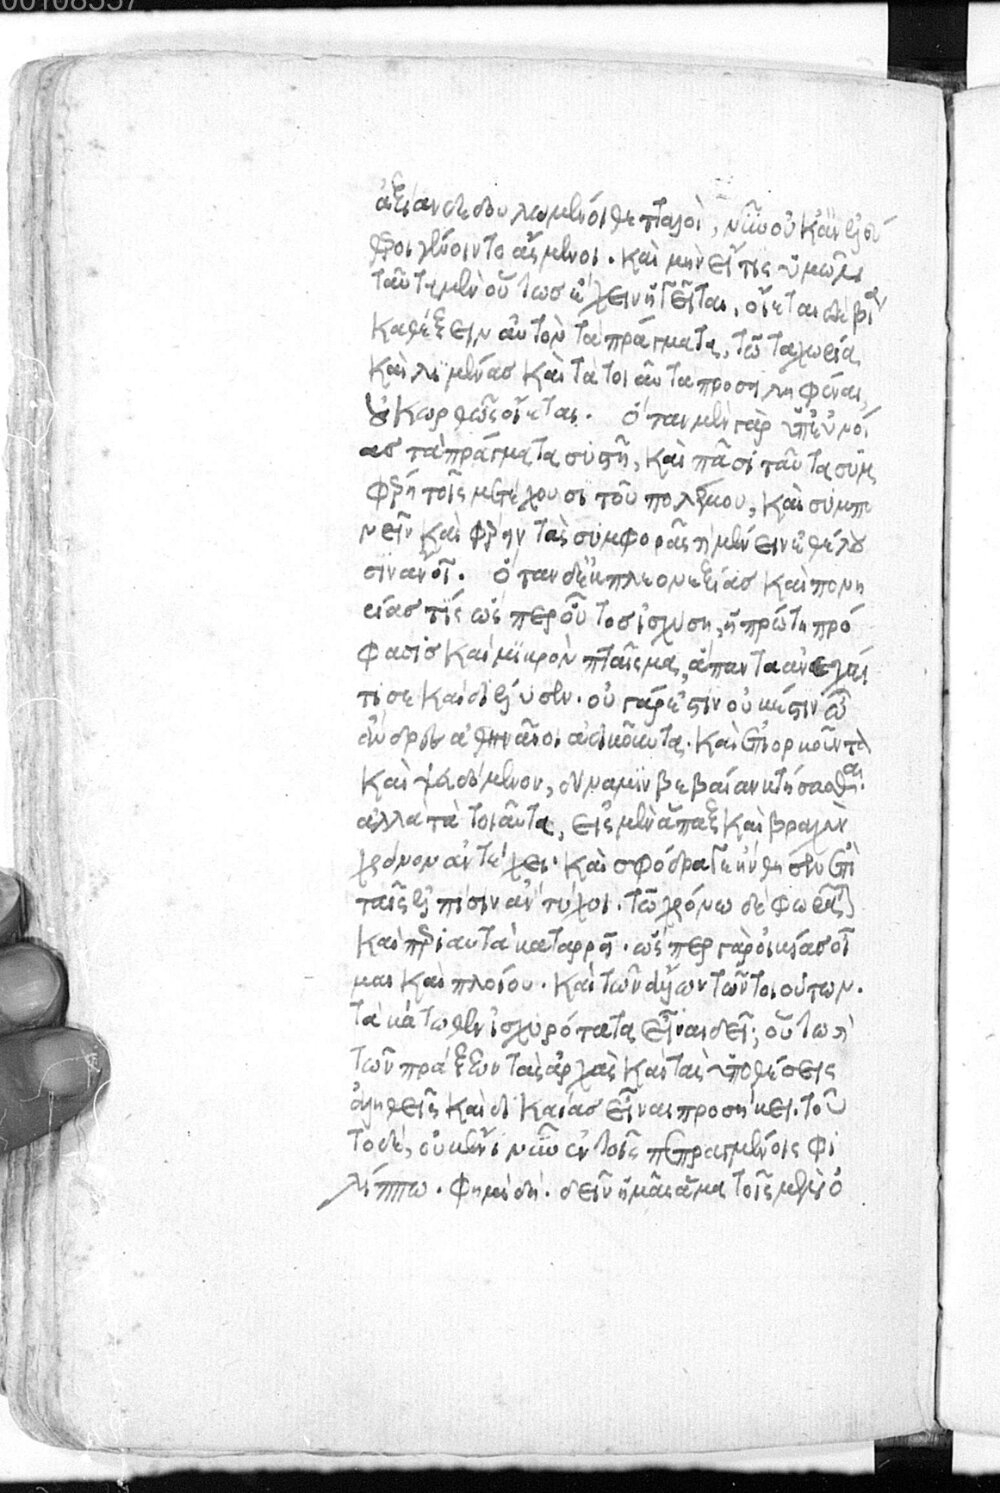 00108557
ἀξίαν δεδουλωμένοι θετταλοὶ, νῦν οὐκ ἂν ἐλεύ
θεροι γένοιντο ἄσμενοι. καὶ μὴν εἴ τις ὑμῶν
ταῦτα μὲν οὕτωσ ἔχειν ἡγεῖται, οἴεται δὲ βίᾳ
καθέξειν αὐτὸν τὰ πράγματα, τῶ τὰ χωρία
καὶ λιμένασ καὶ τὰ τοιαῦτα προσειληφέναι,
οὐκ ὀρθῶς οἴεται. ὅταν μὲν γὰρ ὑπ' εὐνοί
ασ τὰ πράγματα συστῆ, καὶ πᾶσι ταῦτα συμ
φέρη τοῖς μετέχουσι τοῦ πολέμου, καὶ συμπο
νεῖν καὶ φέρειν τὰς συμφορὰς καὶ μένειν ἐθέλου
σιν ἄνοι. ὅταν δ' ἐκ πλεονεξίασ καὶ πονη
ρίασ τίς ὥσπερ οὗτοσ ἰσχύση, ἡ πρώτη πρό
φασισ καὶ μικρὸν πταῖσμα, ἅπαντα ἀνεχαί
τισε καὶ διέλυσεν. οὐ γάρ ἐστιν οὐκ ἔστιν ὦ
ἄνδρες ἀθηναῖοι ἀδικοῦντα. καὶ ἐπιορκοῦντα
καὶ ψευδόμενον, δύναμιν βεβαίαν κτήσασθαι.
ἀλλὰ τὰ τοιαῦτα, εἰς μὲν ἅπαξ καὶ βραχὺν
χρόνον ἀντέχει. καὶ σφόδρα γε ἤνθησεν ἐπὶ
ταῖς ἐλπίσιν ἂν τύχοι. τῶ χρόνω δὲ φωρᾶται
καὶ περὶ αυτὰ καταρρεῖ. ὥσπερ γὰρ οἰκίασ οἶ
μαι καὶ πλοίου. καὶ τῶν ἄλλων τῶν τοιούτων.
τὰ κάτωθεν ἰσχυρότατα εἶναι δεῖ; οὕτω καὶ
τῶν πράξεων τὰς ἀρχὰς καὶ τὰς ὑποθέσεις
ἀληθεῖς καὶ δικαίασ εἶναι προσήκει. τοῦ
το δὲ, οὐκ ἔνι νῦν ἐν τοῖς πεπραγμένοις φι
λίππω. φημὶ δὴ. δεῖν ἡμᾶς ἅμα τοῖς μὲν ὀ